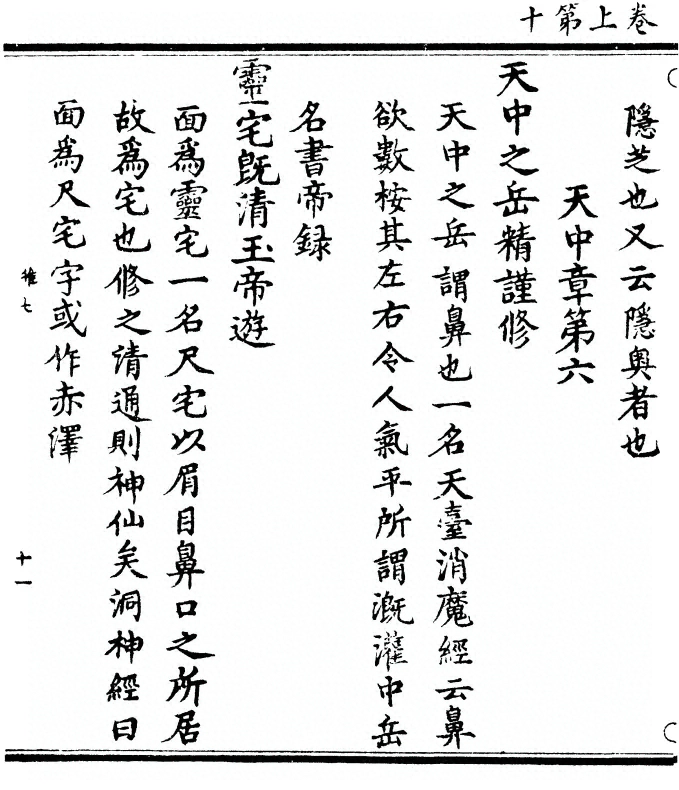 卷上第十
隱芝也又云隱奧者也
天中章第六
天中之岳精謹修
天中之岳謂鼻也一名天臺消魔經云鼻
欲數桉其左右令人氣平所謂溉灌中岳
名書帝録
靈宅既清玉帝遊
面爲靈宅一名尺宅以眉目鼻口之所居
故爲宅也修之清通則神仙矣洞神經曰
面爲尺宅字或作赤澤
推七
十一